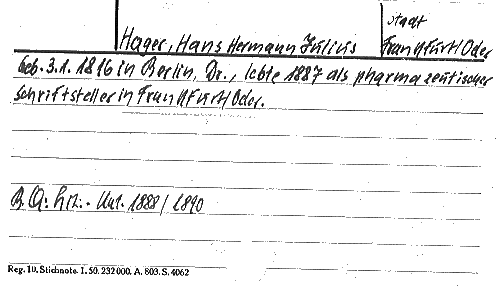 Stadt
Hager, Hans Hermann Julius Frankfurt/Oder
Geb. 3.1. 1816 in Berlin, Dr., lebte 1887 als pharmazeutischer
Schriftsteller in Frankfurt/Oder.
1888/1890
Reg. 10. Stichnote. I. 50. 232000. A. 803. S. 4062